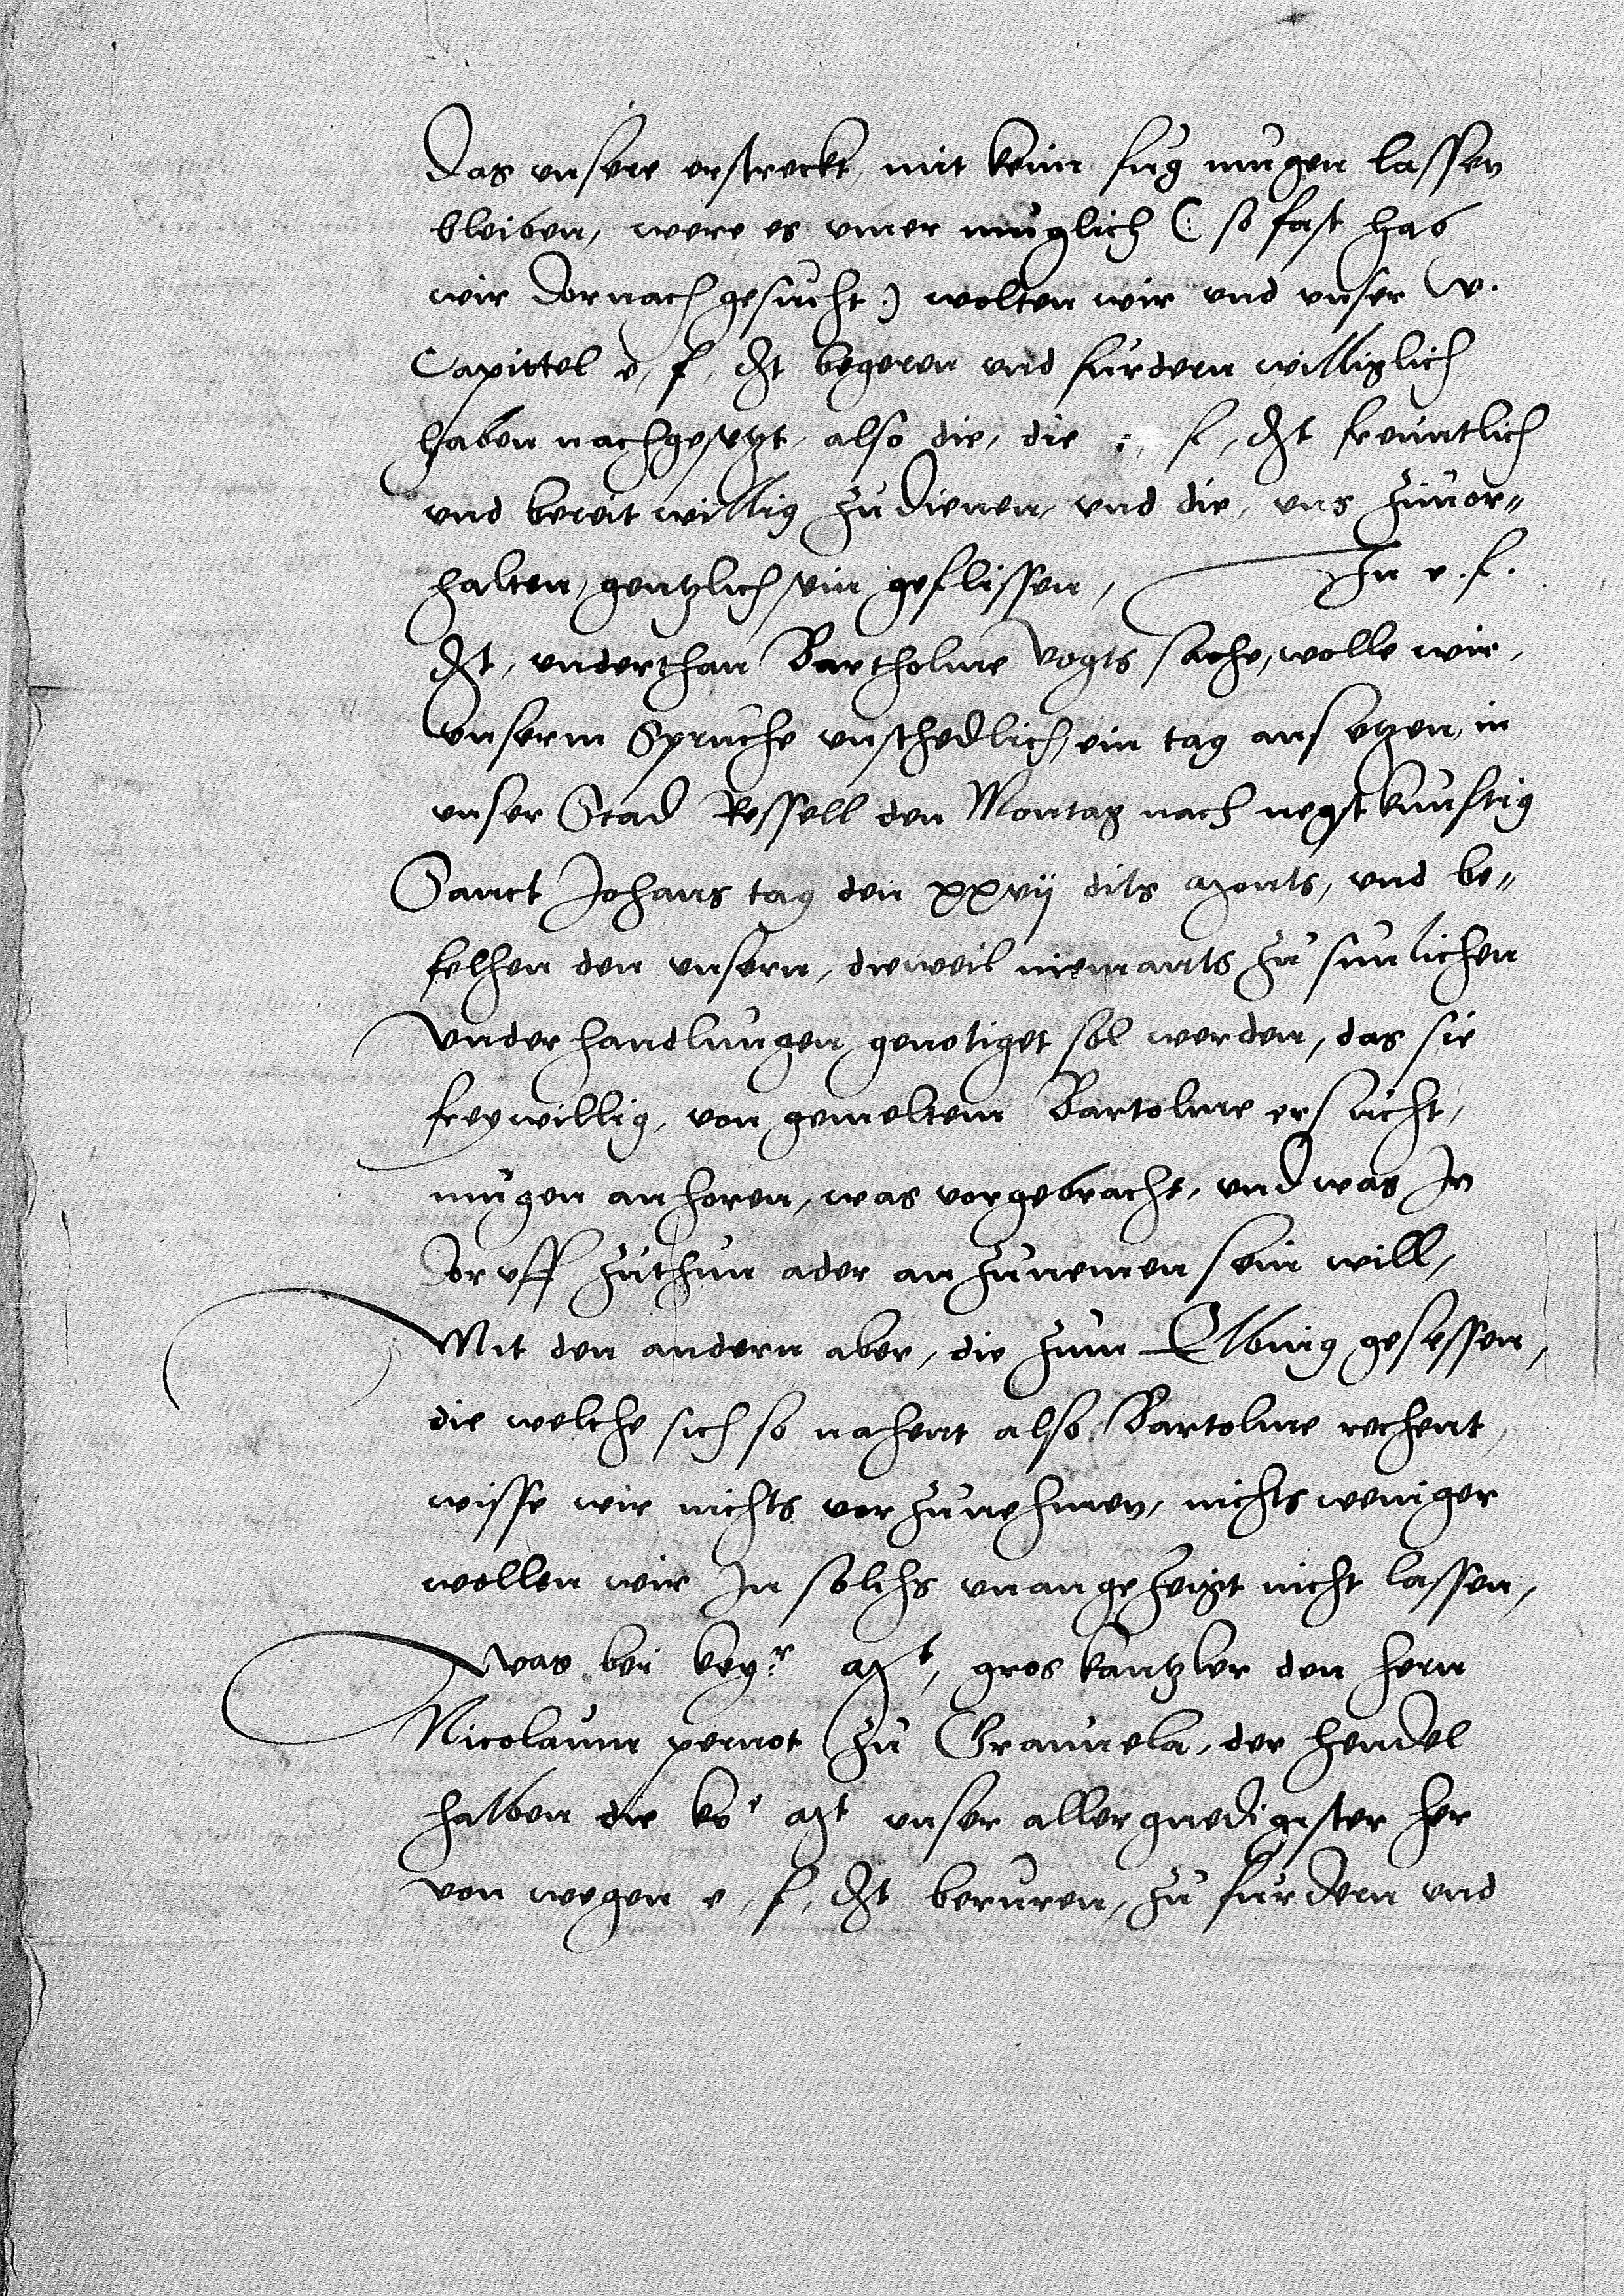 das unsere erstreckt, mit keim fug mugen lassen
bleiben, were es ymer muglich (: so fast hab
wir dornach gesucht :) wolten wir und unser w.
Capittel e, f, dt begeren und furdern williglich
haben nachgesetzt, also die, die e, f, dt freuntlich
und bereit willig zu dienen, und die, uns zuuor„
halten, gentzlich sein geflissen, In e. f.
dt, underthan Bartholme Vogts sache, wolle wir,
Unserm Spruche unschedlich, ein tag ansetzen, in
unser Stad Ressell den Montag nach negstkunftig
Sanct Johans tag den xxvij dits monts, und be„
felhen den unsern, dieweil niemants zu sunlichen
Underhandlungen genotiget sol werden, das sie
freywillig, von gemeltem Bartolme ersucht,
mugen anhoren, was vorgebracht, und was In
doruff zuthun ader anzunemen sein will,
Mit den andern aber, die zum Elbing gesessen,
die welche sich so nahent also Bartolme rechent,
wisse wir nichts vorzunehmen, nichts weniger
wollen wir In solchs unangezeigt nicht lassen,
Was bei keyr mt, gros kantzler den hern
Nicolaum pernot zu Granuela, der hendel
halben die ko mt unser allergnedigster her
von wegen e, f, dt beruren, zu furdern und